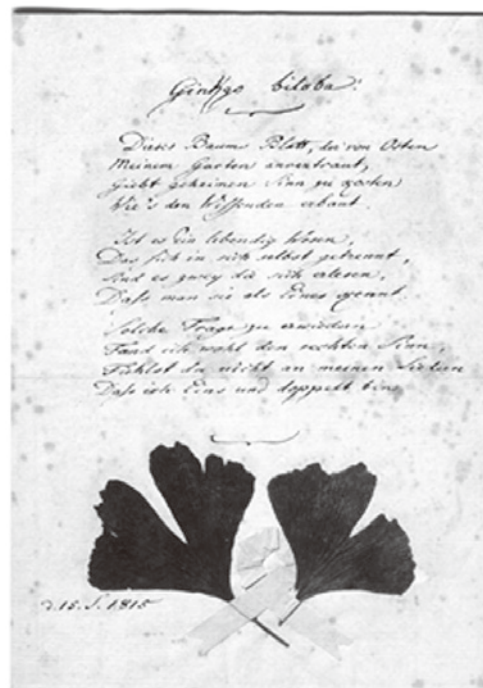 Ginkgo biloba.
Dieses Baum's Blatt, der von Osten
Meinem Garten anvertraut,
Giebt geheimen Sinn zu kosten
Wie's den Wissenden erbaut.
Ist es Ein lebendig Wesen,
Das sich in sich selbst getrennt,
Sind es zwey die sich erlesen,
Dass man sie als Eines kennt.
Solche Frage zu erwiedern
Fand ich wohl den rechten Sinn,
Fühlst du nicht an meinen Liedern
Dass ich Eins und doppelt bin.
d. 15. S. 1815